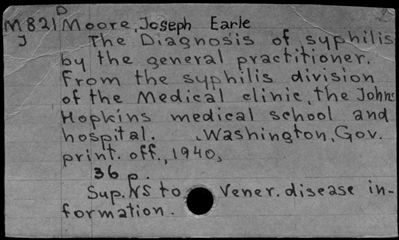 D
M821 Moore, Joseph Earle
J The Diagnosis of syphilis
by the general practitioner.
From the syphilis division
of the Medical clinic, the Johns
Hopkins medical school and
hospital. Washington, Gov.
print. off., 1940,
36 p.
Sup. NS to Vener. disease in-
formation.